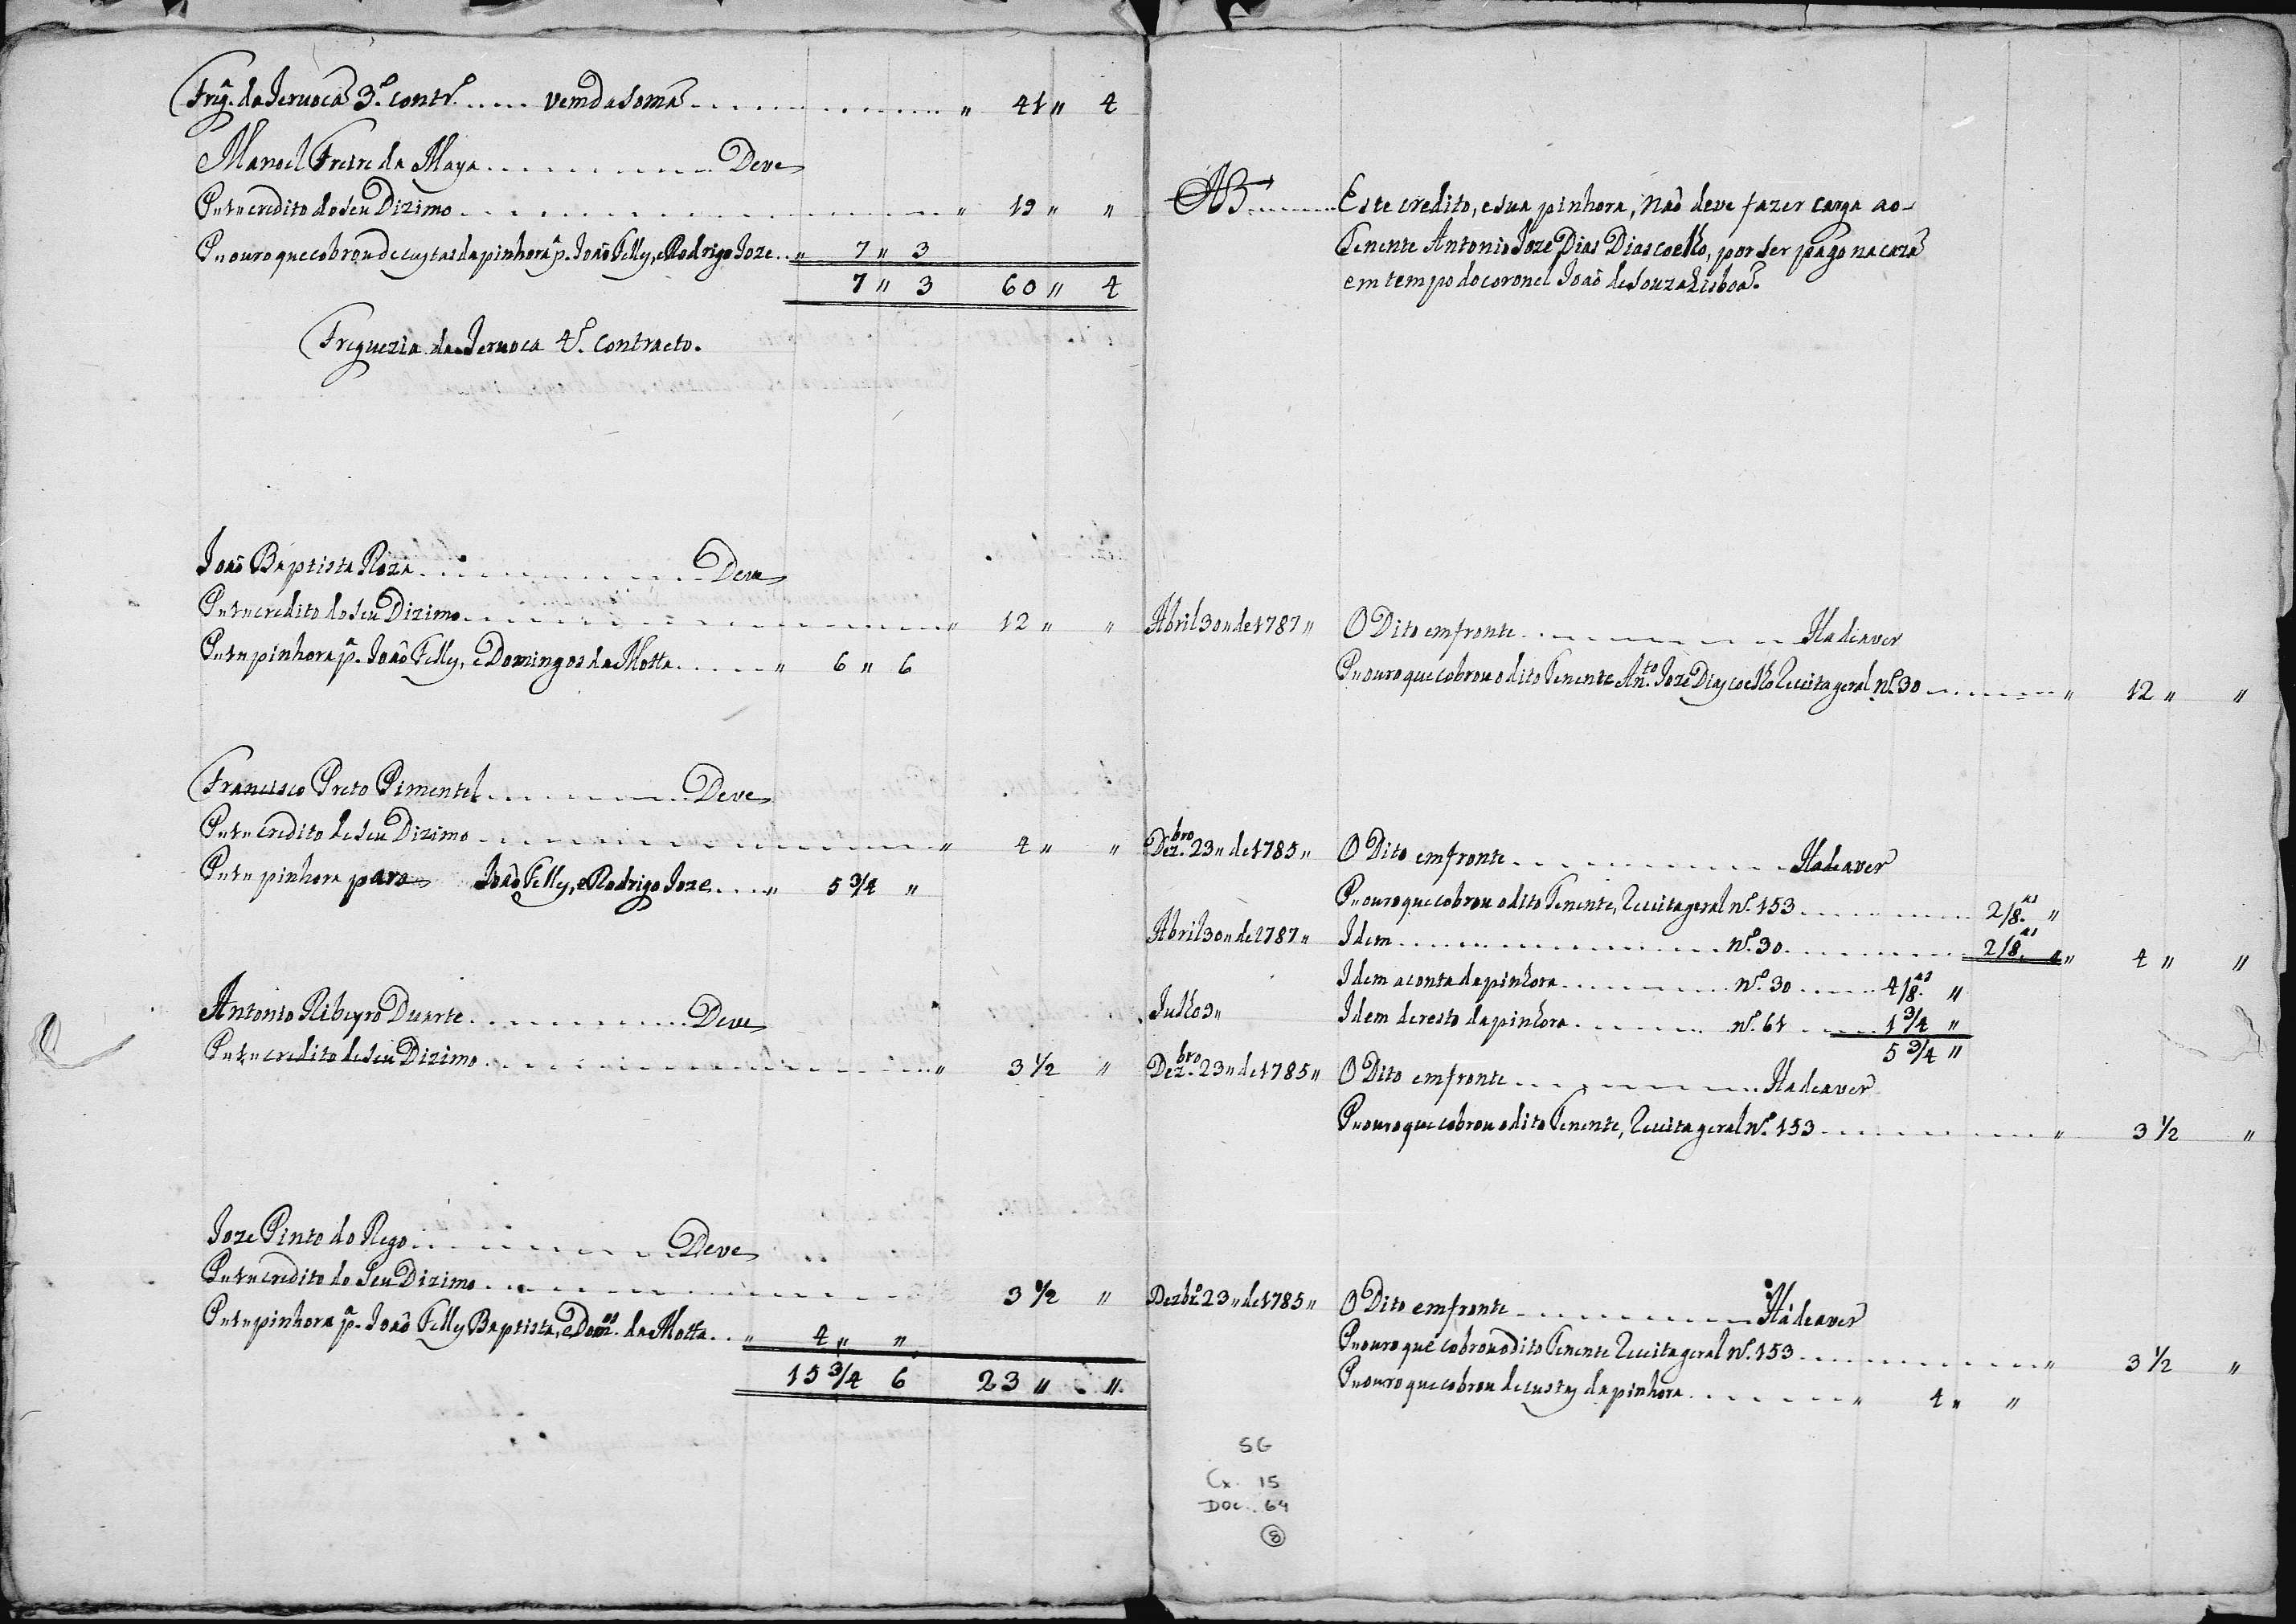 Frg.ª da Ieruoca 3.º contr.º ..... vem da soma ................ " 41 " 4
Manoel Freire da Maya ................ Deve
P " 1 " credito do seu Dizimo ................ " 19 " "
P " ouro que cobrou de custas da pinhora p.ª Joaõ Felly, e Rodrigo Joze .. " 7 " 3
7 " 3 60 " 4
Freguezia da Ieruoca 4.º Contracto.
Joaõ Baptista Roza ................ Deve
P " 1 " credito do seu Dizimo ................ " 12 " "
P " 1 " pinhora p.ª Joaõ Felly, e Domingos da Motta ...... " 6 " 6
Francisco Preto Pimentel ................ Deve
P " 1 " credito de seu Dizimo ................ " 4 " "
P " 1 " pinhora para Joaõ Felly, e Rodrigo Joze .... " 5 3/4 "
Antonio Ribeyro Duarte ................ Deve
P " 1 " credito de seu Dizimo ................ " 3 1/2 "
Joze Pinto do Rego ................ Deve
P " 1 " credito do seu Dizimo ................ 3 1/2 "
P " 1 " pinhora p.ª Joaõ Felly Baptista, e Dom.os da Motta .. " 4 " "
15 3/4 6 23 " "
NB ........ Este credito, e sua pinhora, naõ deve fazer carga ao
Tenente Antonio Joze Dias Dias coelho, por ser pago na caza
em tempo do coronel Joaõ de Souza Lisboa.
Abril 30 " de 1787 " O Dito em fronte ................ Ha de aver
P " ouro que cobrou o dito Tenente An.to Joze Dias coelho Receita geral n.º 30 ........ " 12 " "
Dez.bro 23 " de 1785 " O Dito em fronte ................ Ha de aver
P " ouro que cobrou o dito Tenente, Receita geral n.º 153 ................ 2/8.as "
Abril 30 " de 1787 " Idem ................ n.º 30 ................ 2/8.as " " 4 " "
Idem a conta da pinhora ................ n.º 30 ...... 4/8.as "
Julho 3 " Idem de resto da pinhora ........ n.º 61 ...... 1 3/4 "
5 3/4 "
Dez.bro 23 " de 1785 " O Dito em fronte ................ Ha de aver
P " ouro que cobrou o dito Tenente, Receita geral n.º 153 ................ " 3 1/2 "
Dezbr.º 23 " de 1785 " O Dito em fronte ................ Há de aver
P " ouro que cobrou o dito Tenente Receita geral n.º 153 ................ " 3 1/2 "
P " ouro que cobrou de custas da pinhora ........ " 4 " "
SG
Cx. 15
DOC. 64
8